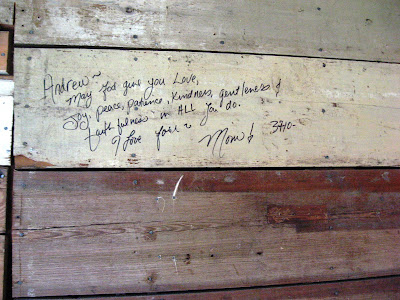 Andrew~
May God give you Love,
Joy, peace, patience, kindness, gentleness &
faithfulness in ALL you do.
I Love you~ Mom